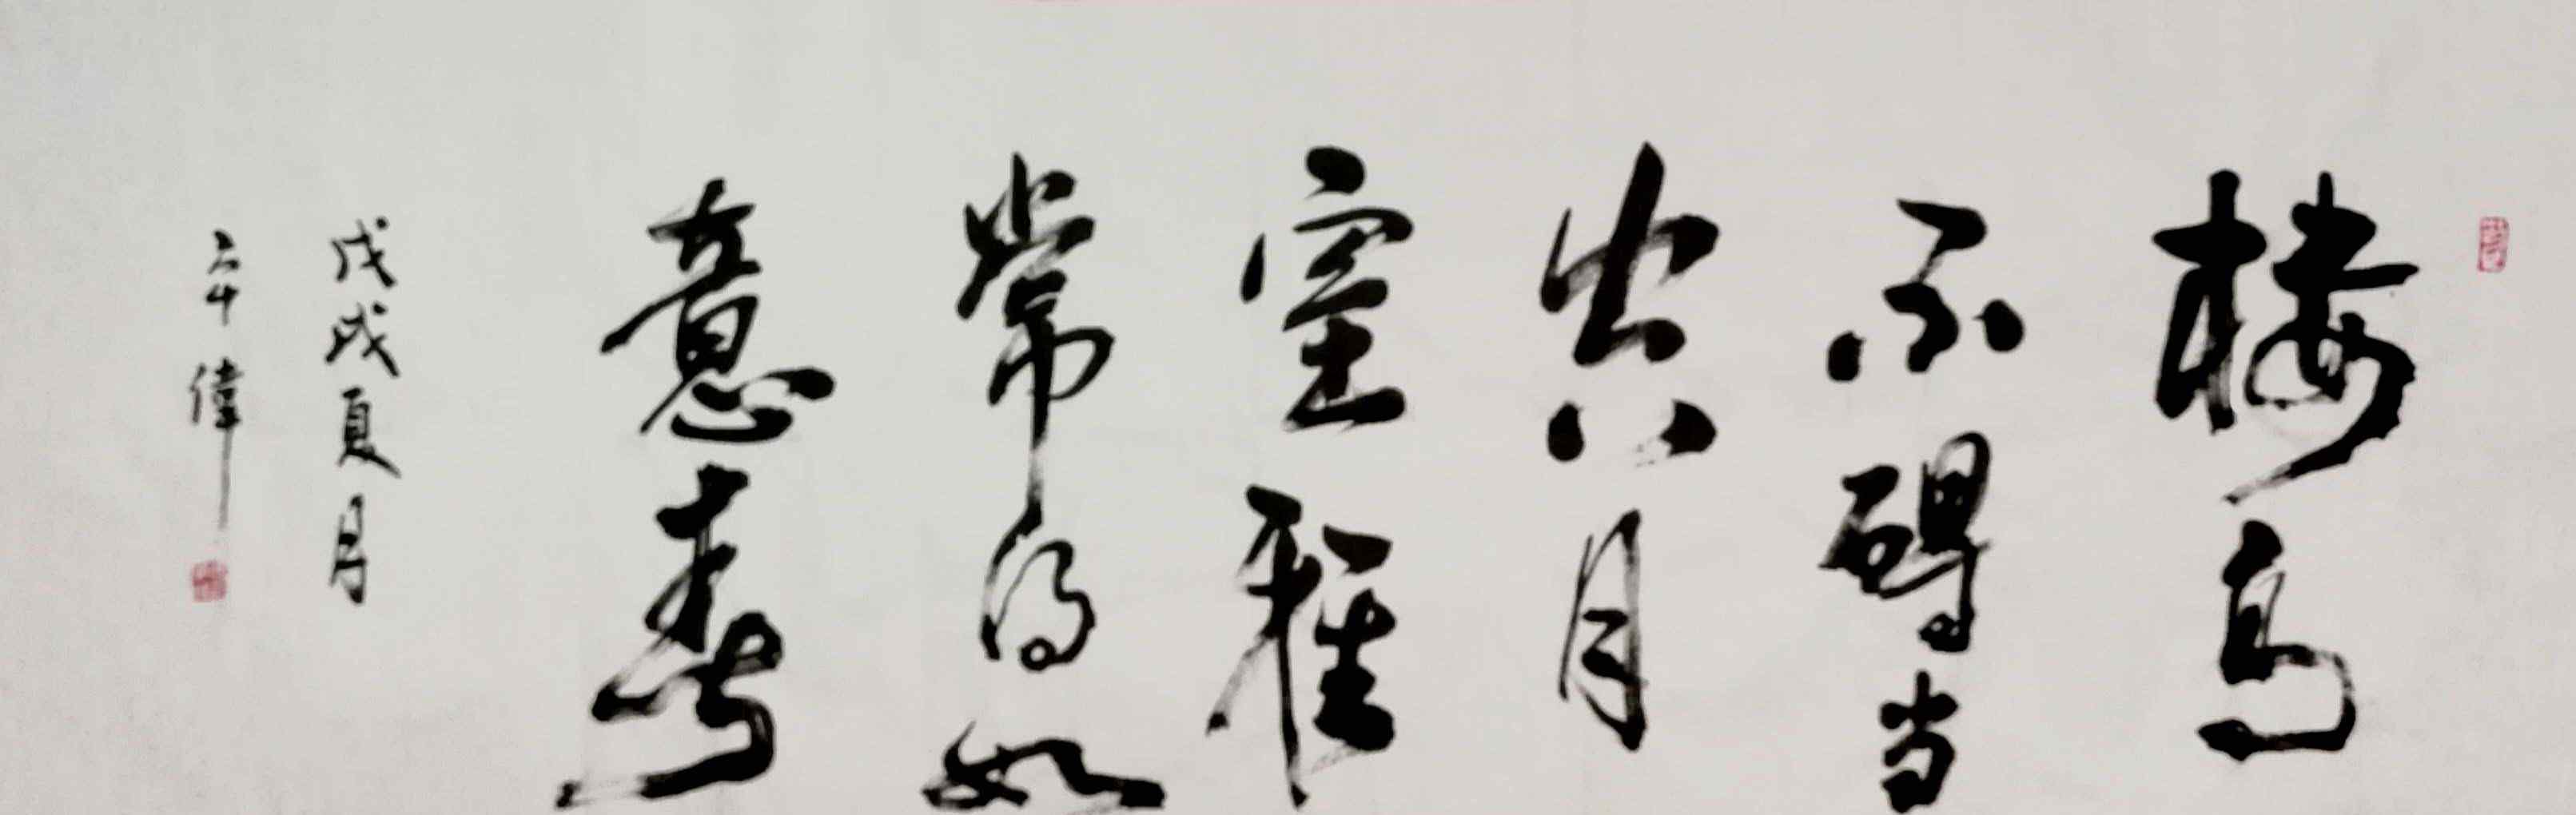 楼高
不碍当
月
室雅
常得如
意寿
戊戌夏月
偉